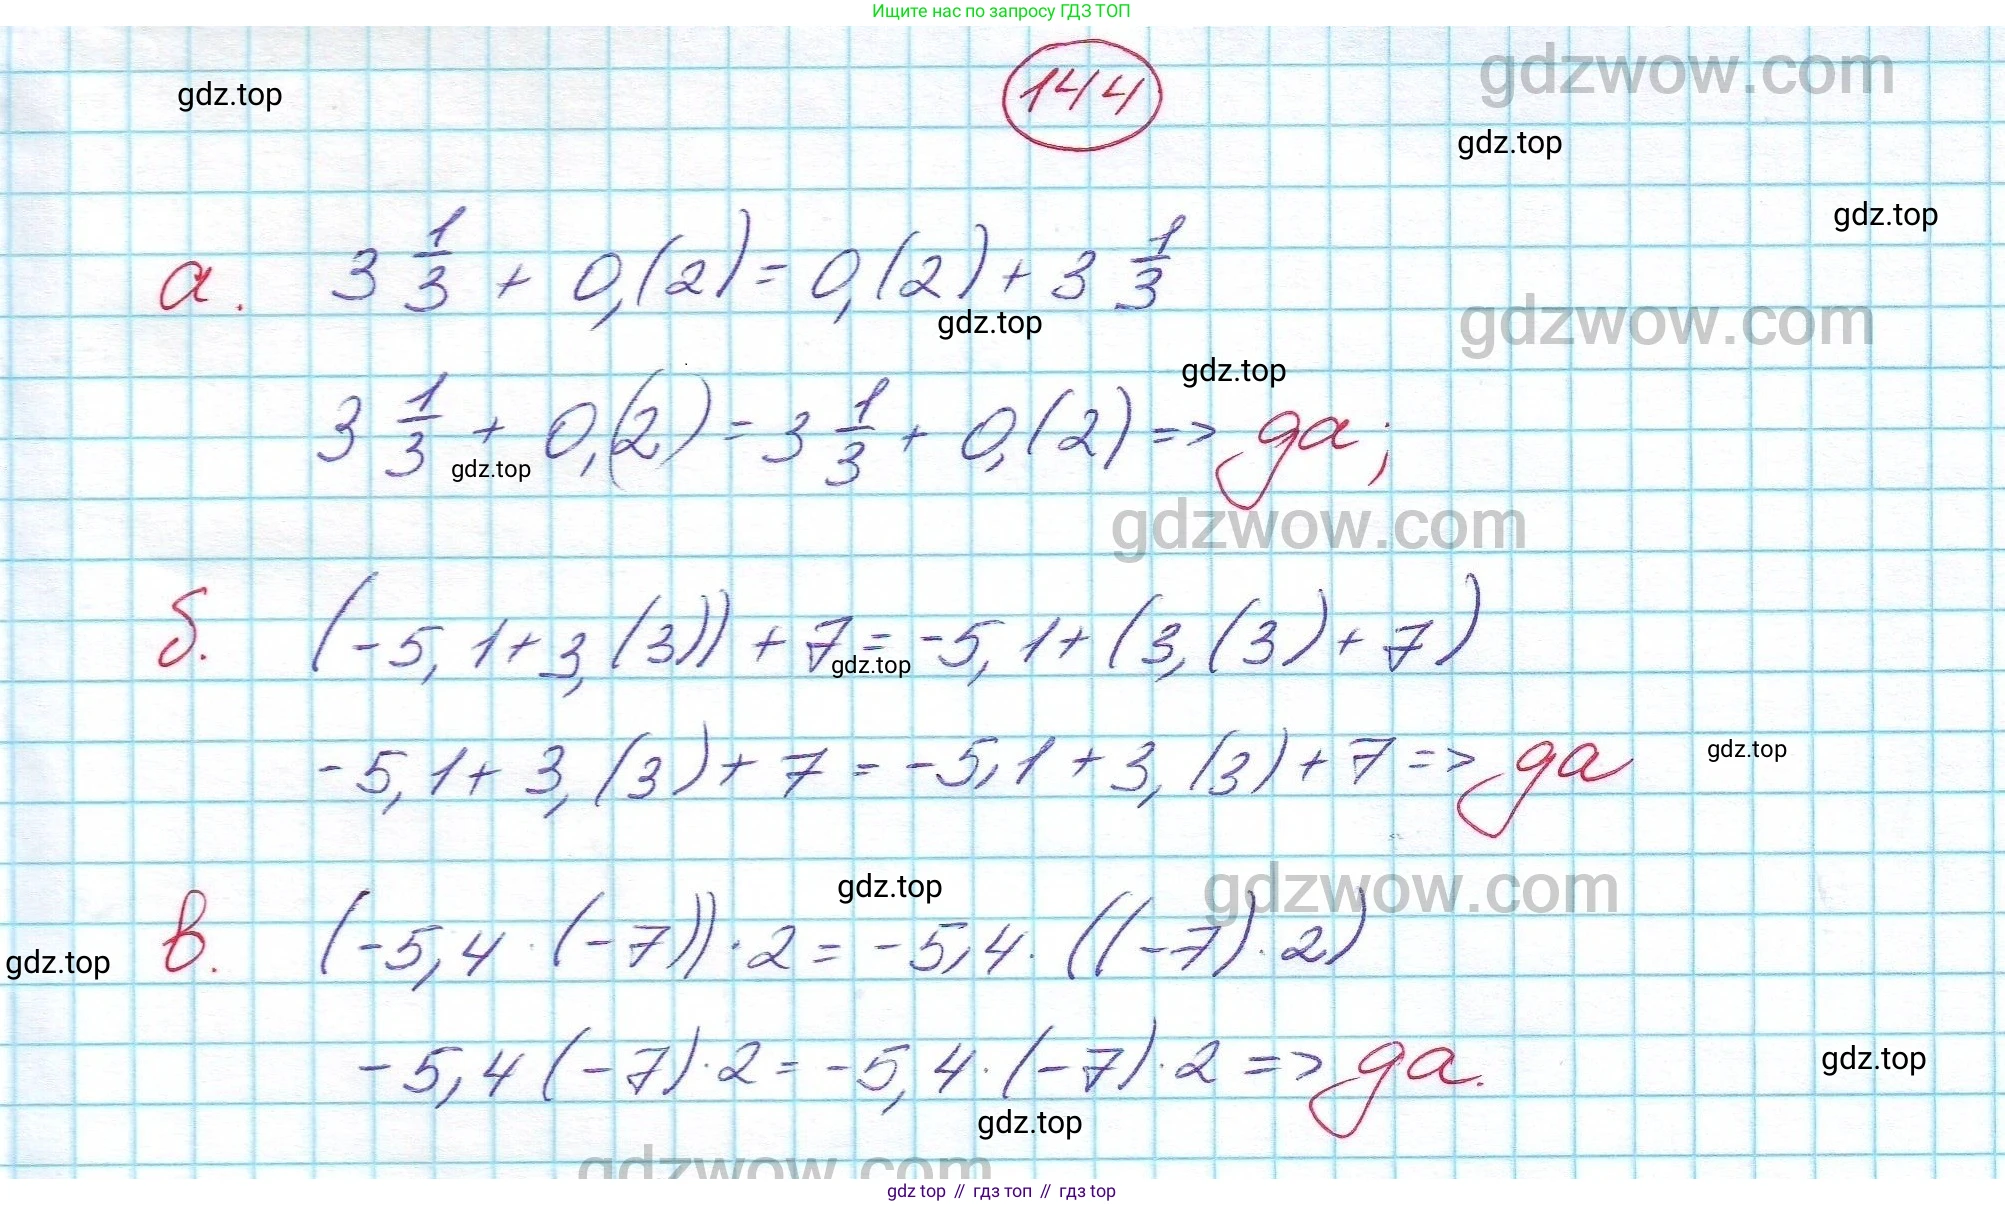 Ищите нас по запросу ГДЗ ТОП
144
gdzwow.com
gdz.top
gdz.top
gdz.top
а. 3 1/3 + 0,(2) = 0,(2) + 3 1/3
gdz.top
gdzwow.com
gdz.top
3 1/3 + 0,(2) = 3 1/3 + 0,(2) => да;
gdz.top
gdzwow.com
б. (-5,1+3,(3)) + 7 = -5,1+(3,(3)+7)
gdz.top
-5,1+3,(3)+7 = -5,1+3,(3)+7 => да
gdz.top
gdz.top
gdzwow.com
в. (-5,4·(-7))·2 = -5,4·((-7)·2)
gdz.top
-5,4(-7)·2 = -5,4·(-7)·2 => да.
gdz.top
gdz.top
gdzwow.com
gdz top // гдз топ // гдз top